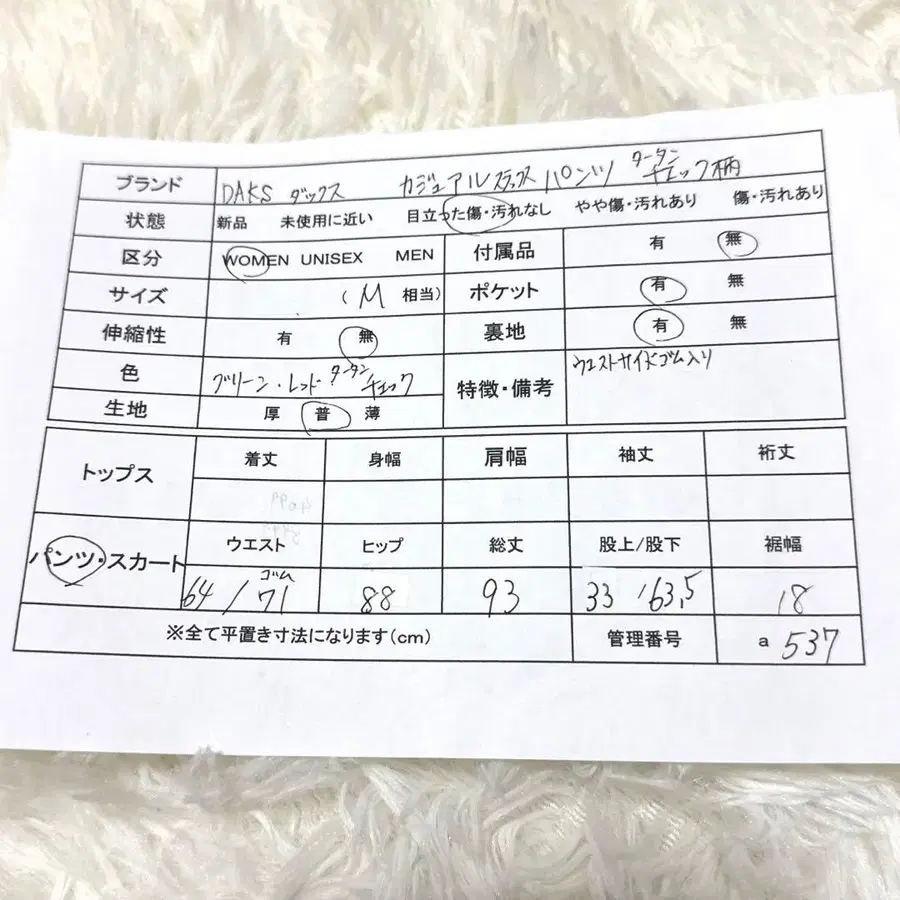 ブランド DAKS ダックス カジュアル スラックス パンツ タータン チェック柄
状態 新品 未使用に近い 目立った傷・汚れなし やや傷・汚れあり 傷・汚れあり
区分 WOMEN UNISEX MEN 付属品 有 無
サイズ (M 相当) ポケット 有 無
伸縮性 有 無 裏地 有 無
色 グリーン・レッド タータン チェック 特徴・備考 ウエストサイズゴム入り
生地 厚 普 薄
トップス 着丈 身幅 肩幅 袖丈 裄丈
パンツ・スカート ウエスト ヒップ 総丈 股上/股下 裾幅
64 / 71 ゴム 88 93 33 / 63,5 18
※全て平置き寸法になります(cm) 管理番号 a 537